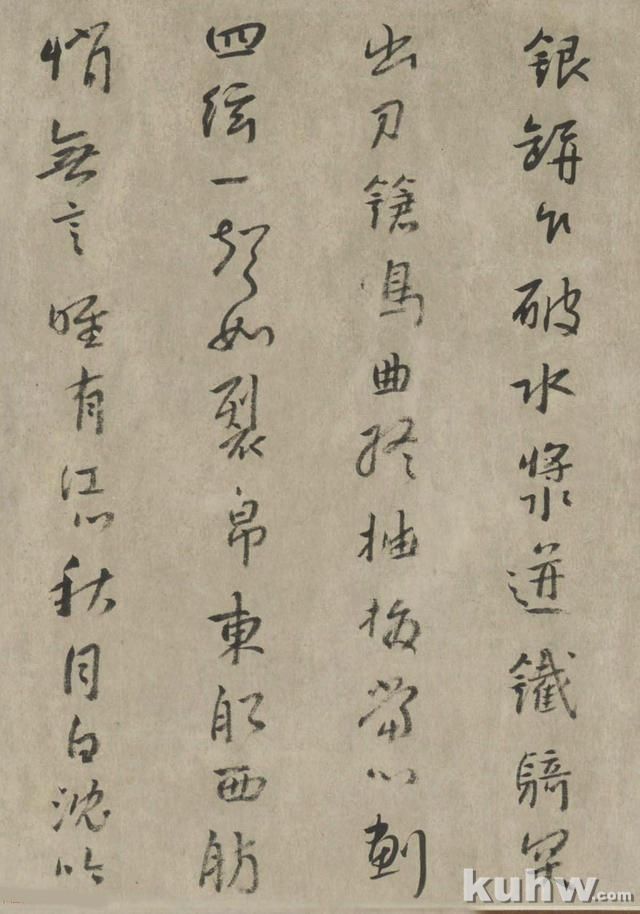 銀缾乍破水漿迸鐵騎突
出刀鎗鳴曲終抽撥當心劃
四絃一聲如裂帛東船西舫
悄無言唯有江心秋月白沈吟
kuhw.com